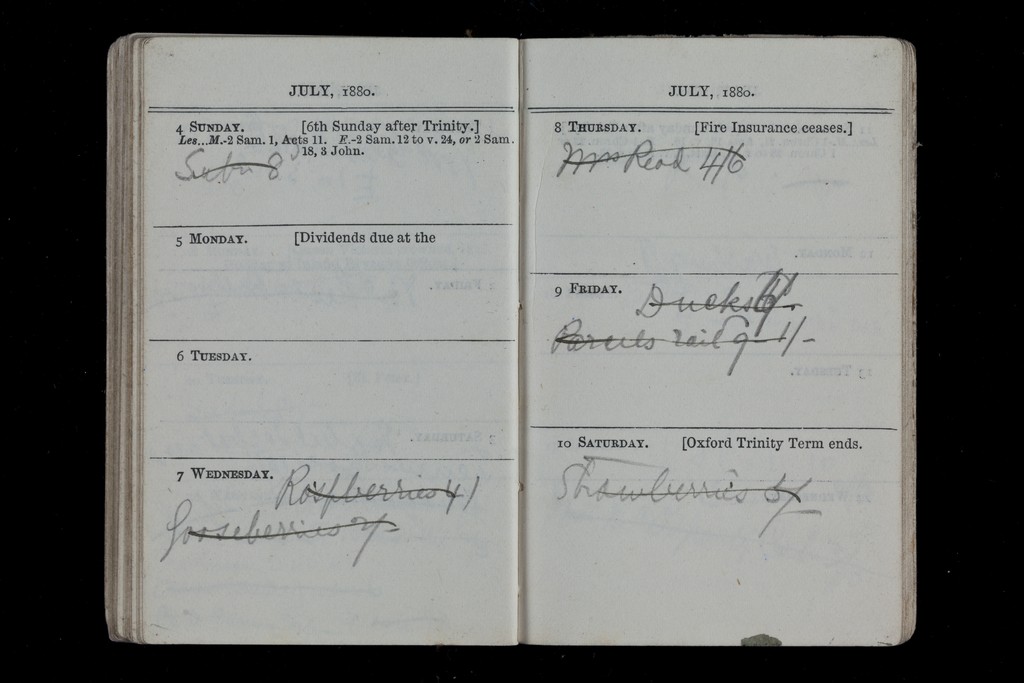 JULY, 1880.
4 SUNDAY. [6th Sunday after Trinity.]
Les...M.-2 Sam. 1, Acts 11. E.-2 Sam. 12 to v. 24, or 2 Sam.
18, 3 John.
8d
5 MONDAY. [Dividends due at the
6 TUESDAY.
7 WEDNESDAY. Raspberries 4/
Gooseberries 2/-
JULY, 1880.
8 THURSDAY. [Fire Insurance ceases.]
Mrs Read 4/6
9 FRIDAY. Ducks
Parcels rail 9 1/-
10 SATURDAY. [Oxford Trinity Term ends.
Strawberries 5/